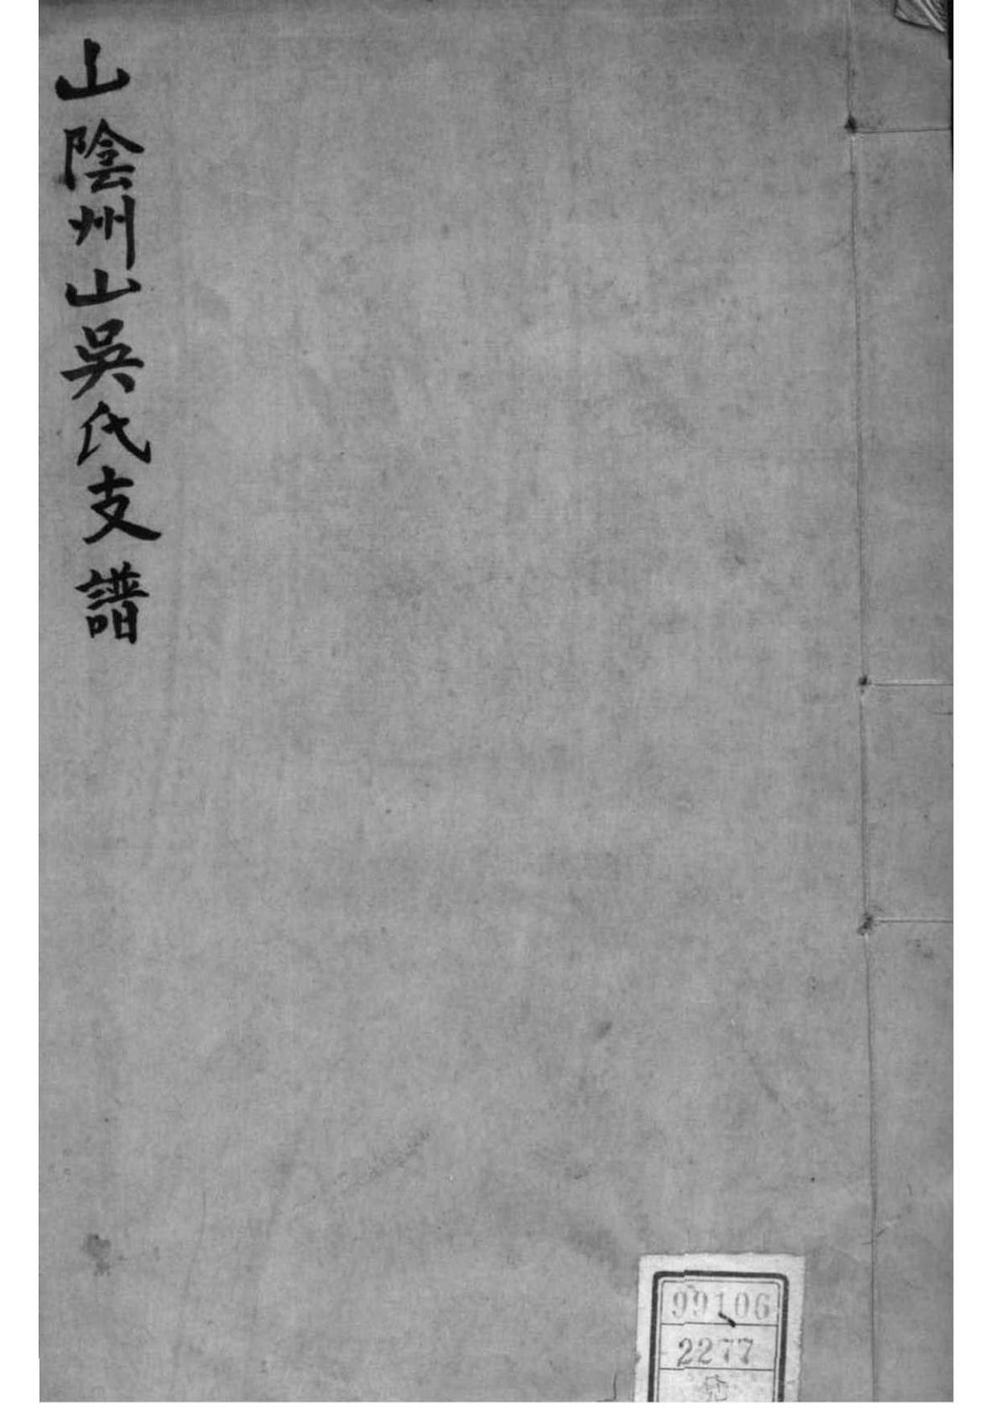 山陰州山吳氏支譜
99106
2277